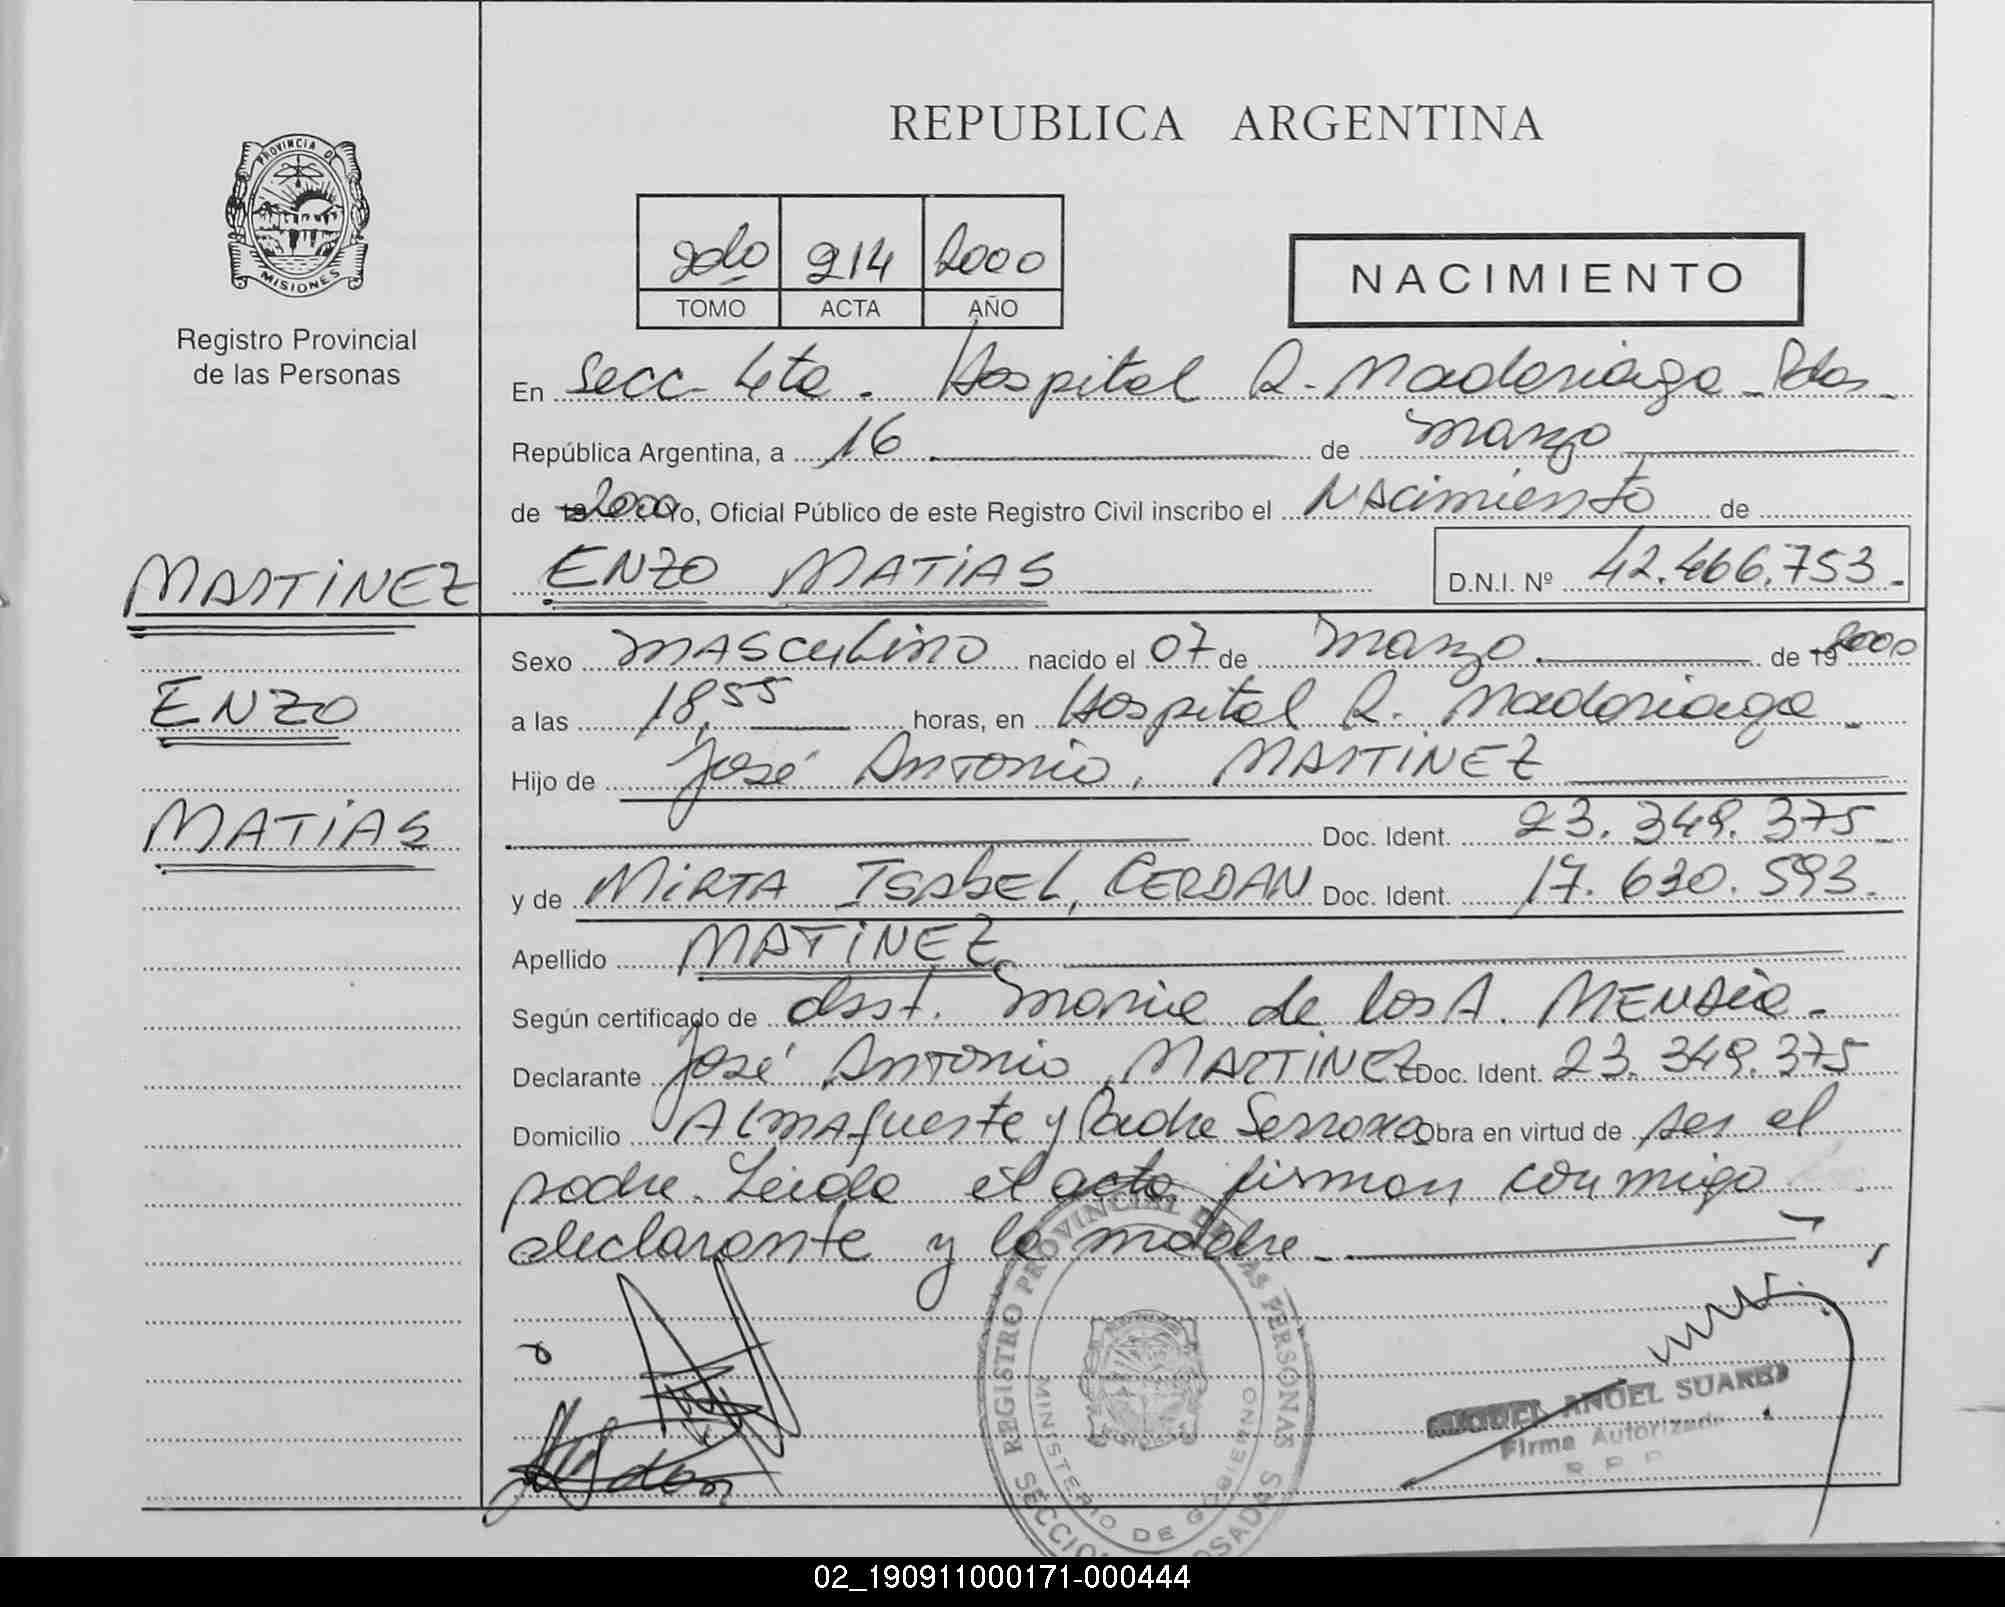 REPUBLICA ARGENTINA
PROVINCIA DE
MISIONES
Registro Provincial
de las Personas
2do 214 2000
TOMO ACTA AÑO
NACIMIENTO
En Secc- 4ta. Hospital R. Madariaga - Pdas -
República Argentina, a 16 de Marzo
de 2000 Yo, Oficial Público de este Registro Civil inscribo el Nacimiento de
MARTINEZ
ENZO MATIAS
D.N.I. Nº 42.466.753.-
Sexo Masculino nacido el 07 de Marzo de 19 2000
ENZO
a las 18,55 horas, en Hospital R. Madariaga -
Hijo de José Antonio, MARTINEZ
MATIAS
Doc. Ident. 23.349.375
y de MIRTA ISABEL, CERDAN Doc. Ident. 17.630.593.
Apellido MATINEZ
Según certificado de obst. Maria de los A.
Declarante José Antonio, MARTINEZ Doc. Ident. 23.349.375
Domicilio Almafuerte y Padre Serrano Obra en virtud de ser el
padre. Leída el acta firman conmigo
declarante y la madre.
REGISTRO PROVINCIAL DE LAS PERSONAS
MINISTERIO DE GOBIERNO
SECCION POSADAS
MIGUEL ANGEL SUAREZ
Firma Autorizada
R P P
02_190911000171-000444